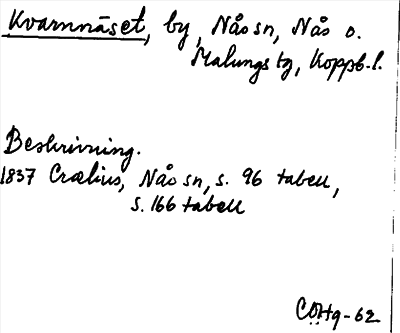 Kvarnnäset, by, Nås sn, Nås o.
Malungs tg, Koppb. l.
Beskrivning.
1837 Crælius, Nås sn, s. 96 tabell,
s. 166 tabell
CÖHg-62